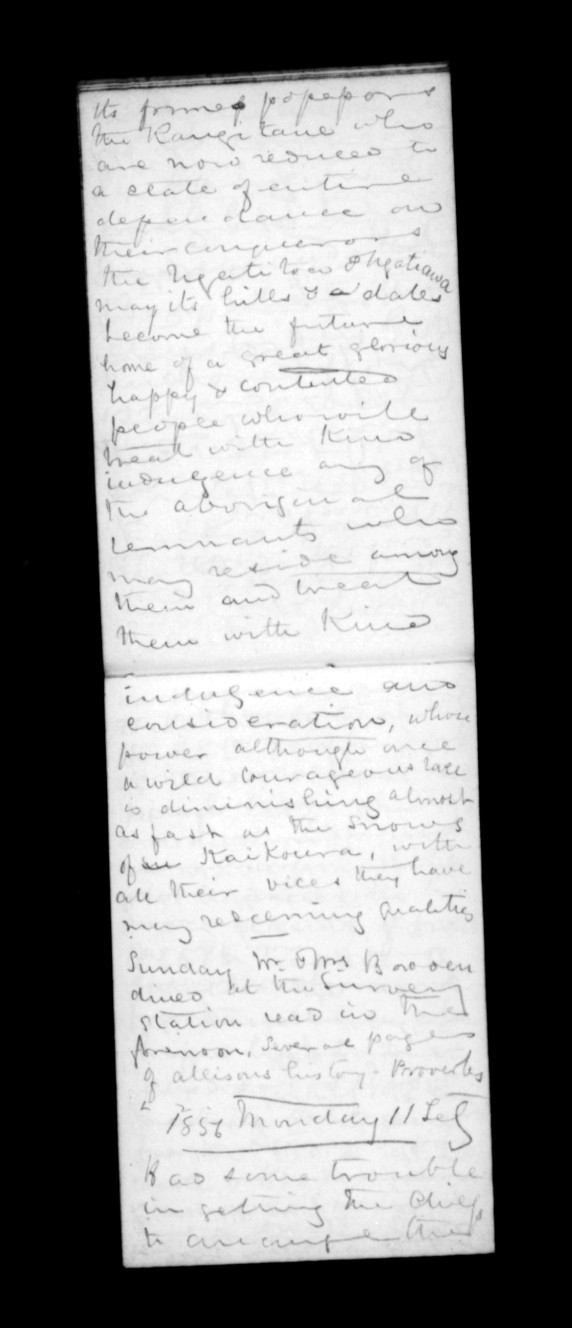 its former possessors
the Rangitane who
are now reduced to
a state of entire
dependance on
their conquerors
the Ngatitoa & Ngatiawa
may its hills & dales
become the future
home of a great glorious
happy & contented
people who will
treat with kind
indulgence any of
the aboriginal
remnants who
may reside among
them and treat
them with kind
indulgence and
consideration, whose
power although once
a wild courageous race
is diminishing almost
as fast as the snows
of Kaikoura, with
all their vices they have
many redeeming qualities
Sunday Mr & Mrs
dined at the Survey
station read in the
forenoon, several pages
of allisons history - Proverbs
1856 Monday 11 Feb
Had some trouble
in getting the chiefs
to arrange the